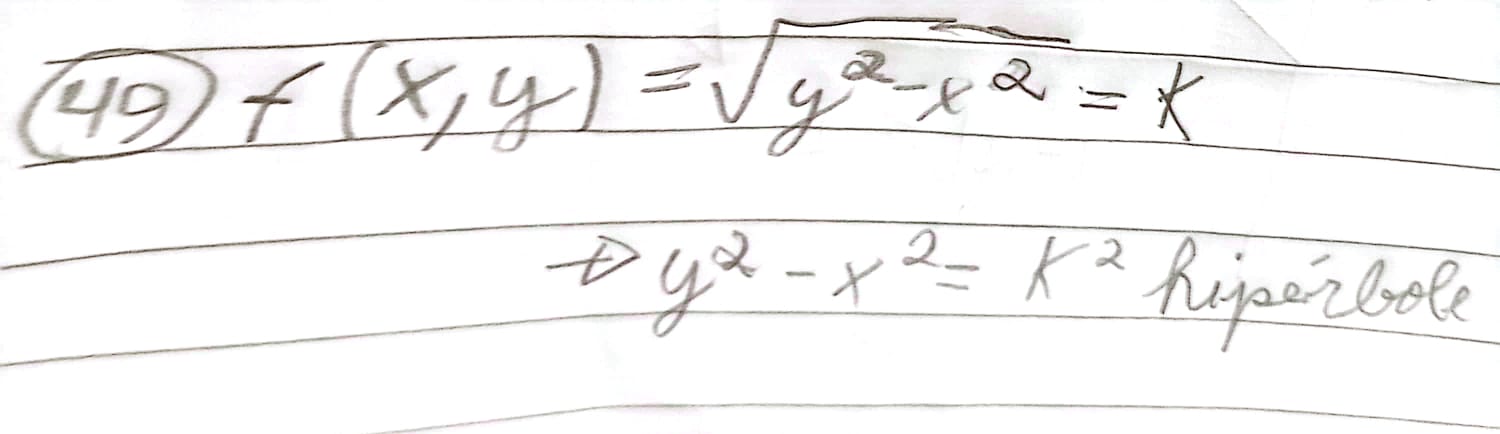 49 f(x,y) = √(y² - x²) = K
→ y² - x² = K² hipérbole